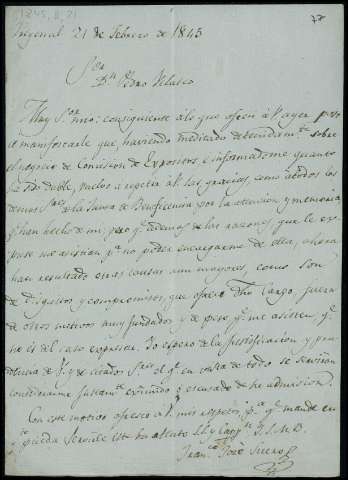 Fregenal 21 de Febrero de 1845
77
Sor
Dn Pedro Velasco
Muy Sor mio: consiguiente á lo que ofrecí á V. ayer, paso
á manifestarle que haviendo meditado detenidamte sobre
el negocio de Comision de Expositos, é informadome quanto
ha sido dable, vuelvo a repetir á V. las gracias, como á todos los
demas Sres de la Junta de Beneficencia por la atencion y memoria
qe han hecho de mi, pero qe ademas de las razones que le ex-
puse me asistian pa no poder encargarme de ella, ahora
han resultado otras causas aun mayores, como son
de disgustos y compromisos, que ofrece dho Cargo, fuera
de otros motivos muy fundados y de peso qe me asisten, qe
no es del caso expresar. Yo espero de la justificacion y pru-
dencia de V. y de citados Sres el qe en vista de todo se serviran
considerarme justamte eximido ó escusado de su admision.
Con este motivo ofrezco á V. mis respetos, pa qe mande en
qto pueda servirle este su atento S. y Capn Q. S. M. B.
Franco José Suero